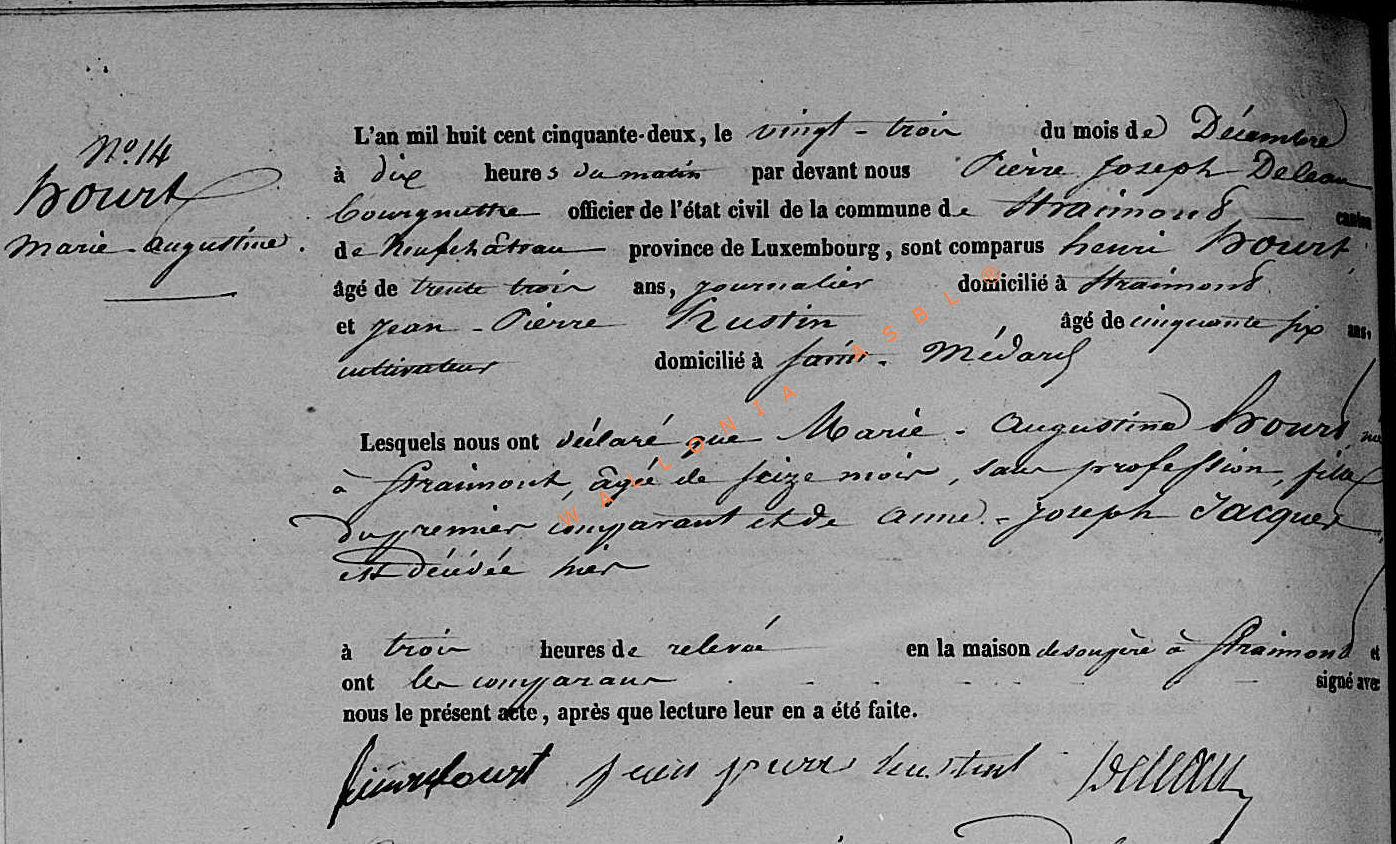 N° 14
hourt
Marie-augustine.
L'an mil huit cent cinquante-deux, le vingt-trois du mois de Décembre
à dix heures du matin par devant nous Pierre Joseph Deleau
bourgmettre officier de l'état civil de la commune de Straimond, canton
de Neufchâteau province de Luxembourg, sont comparus henri hourt,
âgé de trente trois ans, journalier domicilié à Straimond.
et jean-Pierre hustin âgé de cinquante six ans,
cultivateur domicilié à saint-Médard
Lesquels nous ont déclaré que Marie-Augustine hourt, née
à Straimont, âgée de seize mois, sans profession, fille
du premier comparant et de anne-joseph Jacques,
est décédée hier
à trois heures de relevée en la maison de son père à Straimond et
ont les comparans signé avec
nous le présent acte, après que lecture leur en a été faite.
jean pierre hustint Deleau
WALLONIA ASBL ®